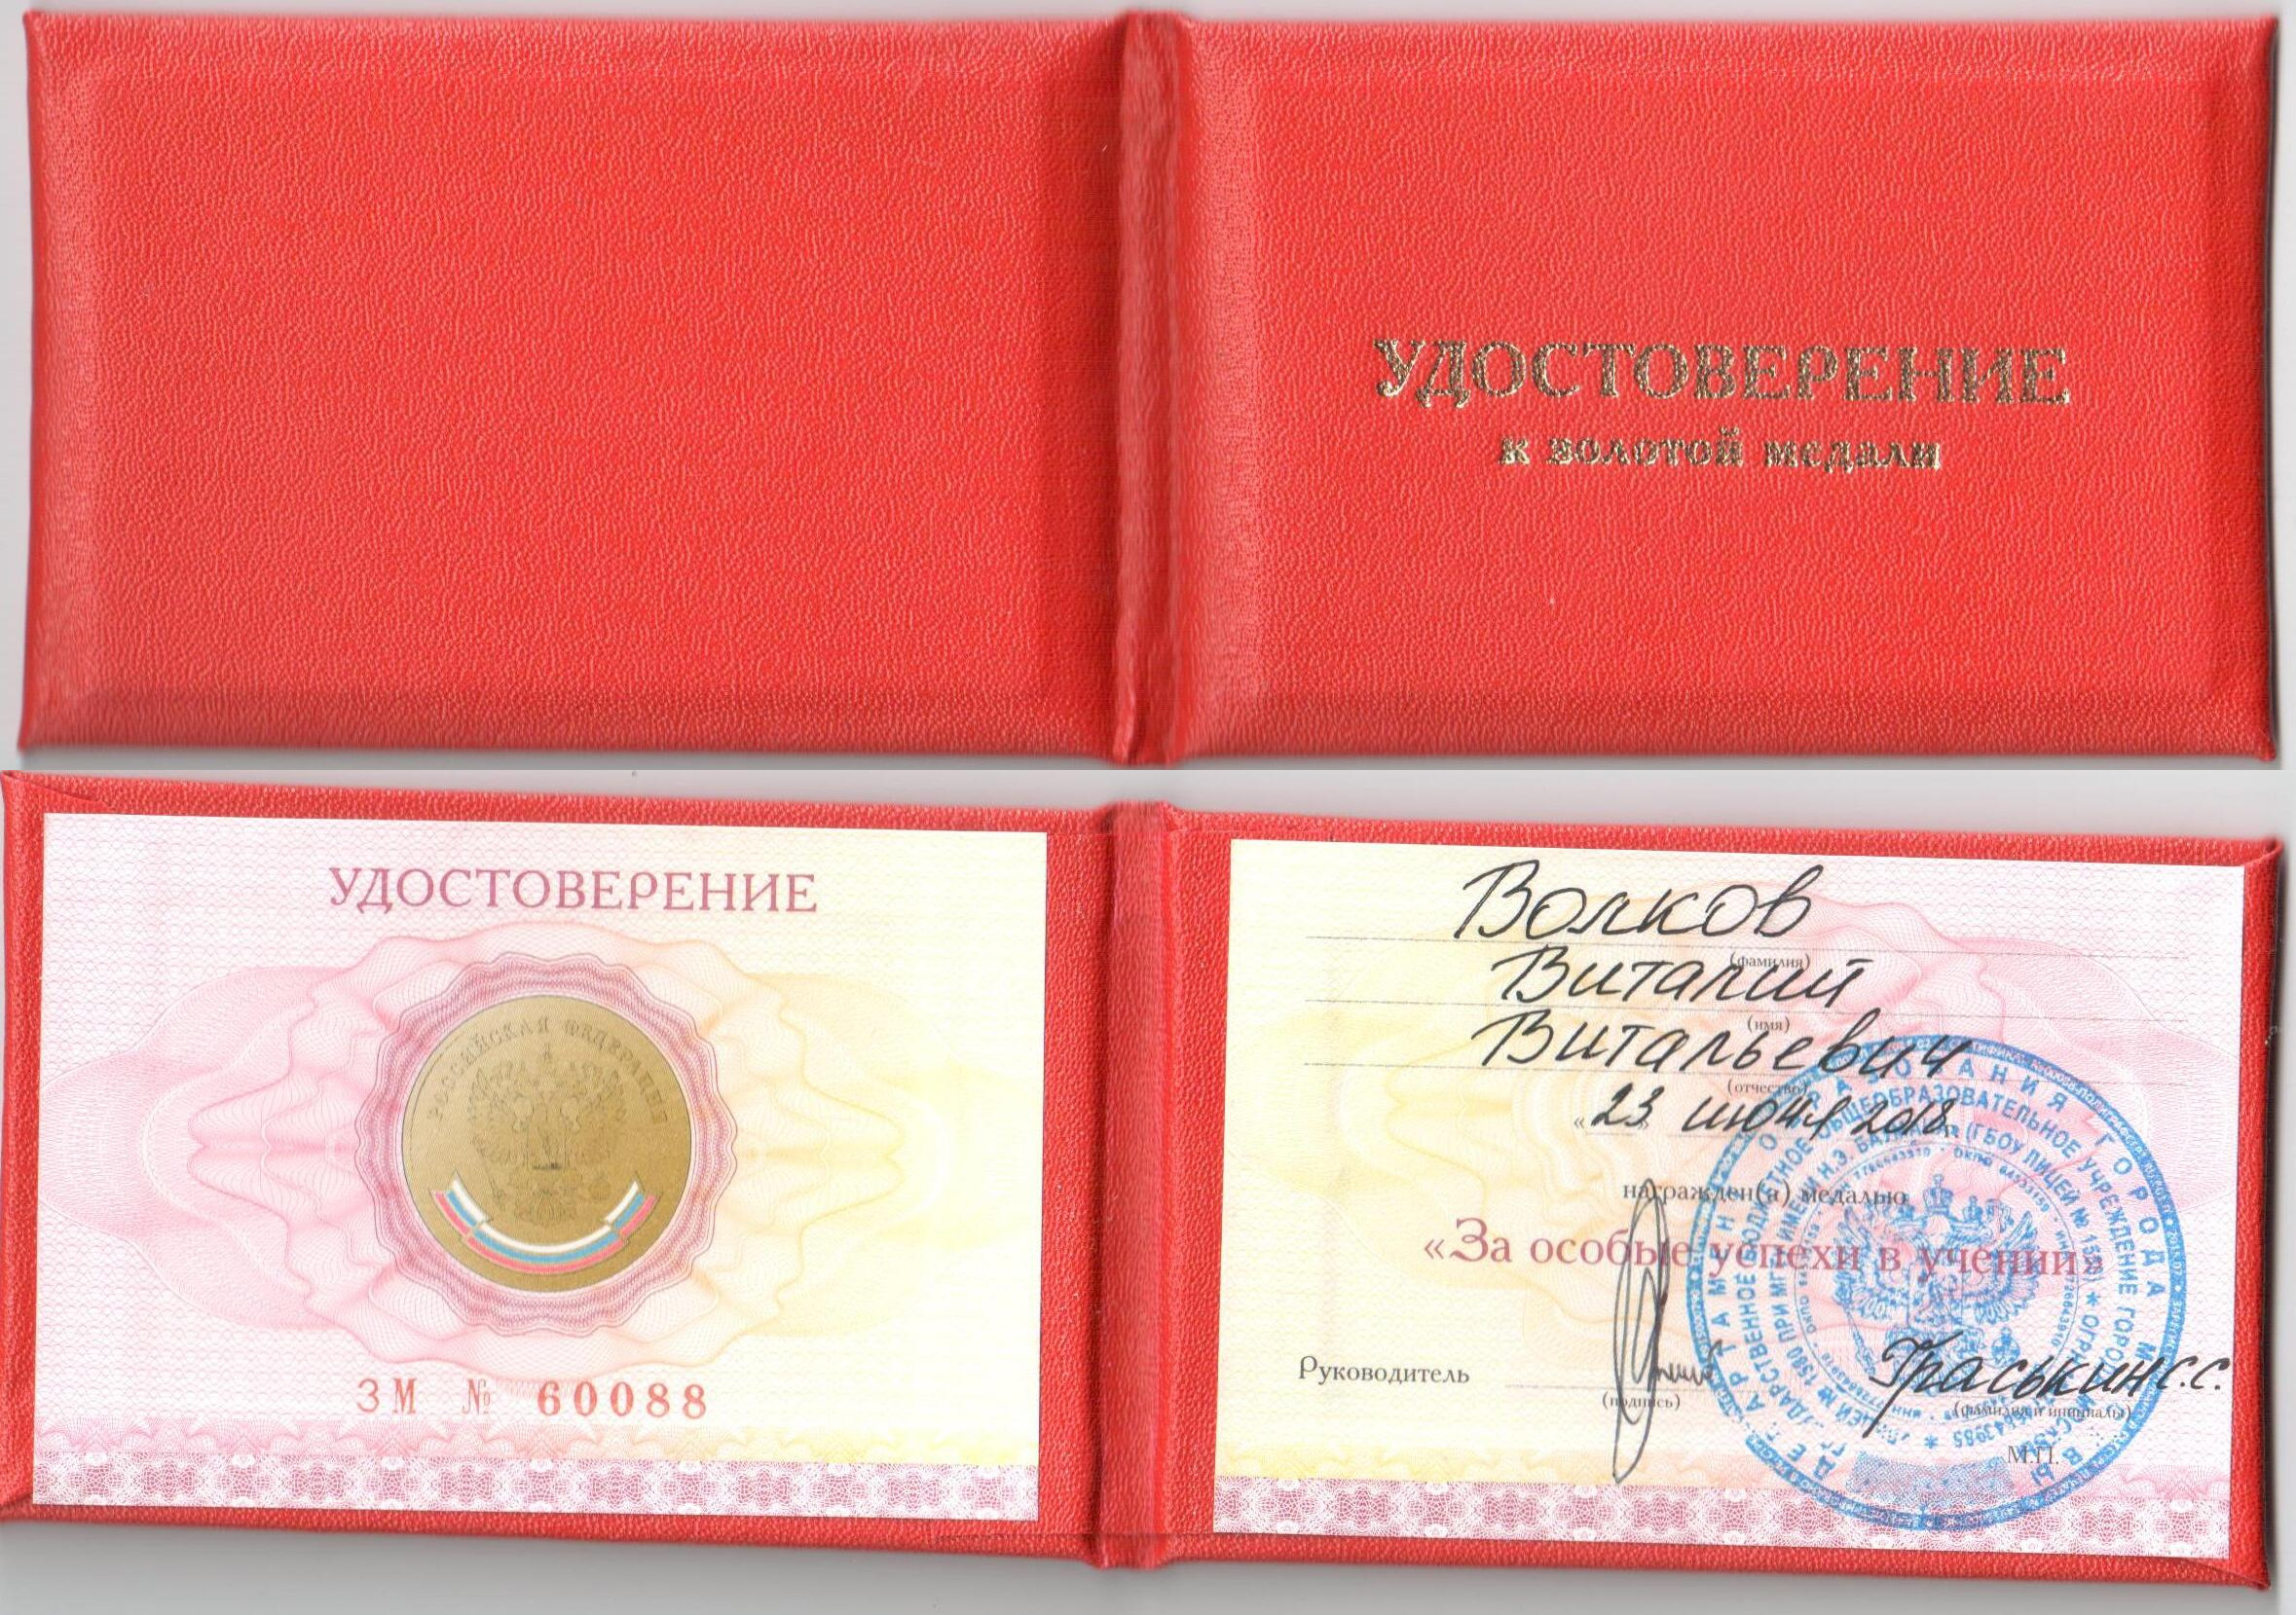 УДОСТОВЕРЕНИЕ
к золотой медали
УДОСТОВЕРЕНИЕ
РОССИЙСКАЯ ФЕДЕРАЦИЯ
ЗМ № 60088
Волков
(фамилия)
Виталий
(имя)
Витальевич
(отчество)
«23 июня 2018 г.
награжден(а) медалью
«За особые успехи в учении»
Руководитель
Граськин С.С.
(подпись)
(фамилия и инициалы)
М.П.
ДЕПАРТАМЕНТ ОБРАЗОВАНИЯ ГОРОДА МОСКВЫ
ГОСУДАРСТВЕННОЕ БЮДЖЕТНОЕ ОБЩЕОБРАЗОВАТЕЛЬНОЕ УЧРЕЖДЕНИЕ ГОРОДА МОСКВЫ
ЛИЦЕЙ № 1580 ПРИ МГТУ ИМЕНИ Н.Э. БАУМАНА (ГБОУ ЛИЦЕЙ № 1580) * ОГРН